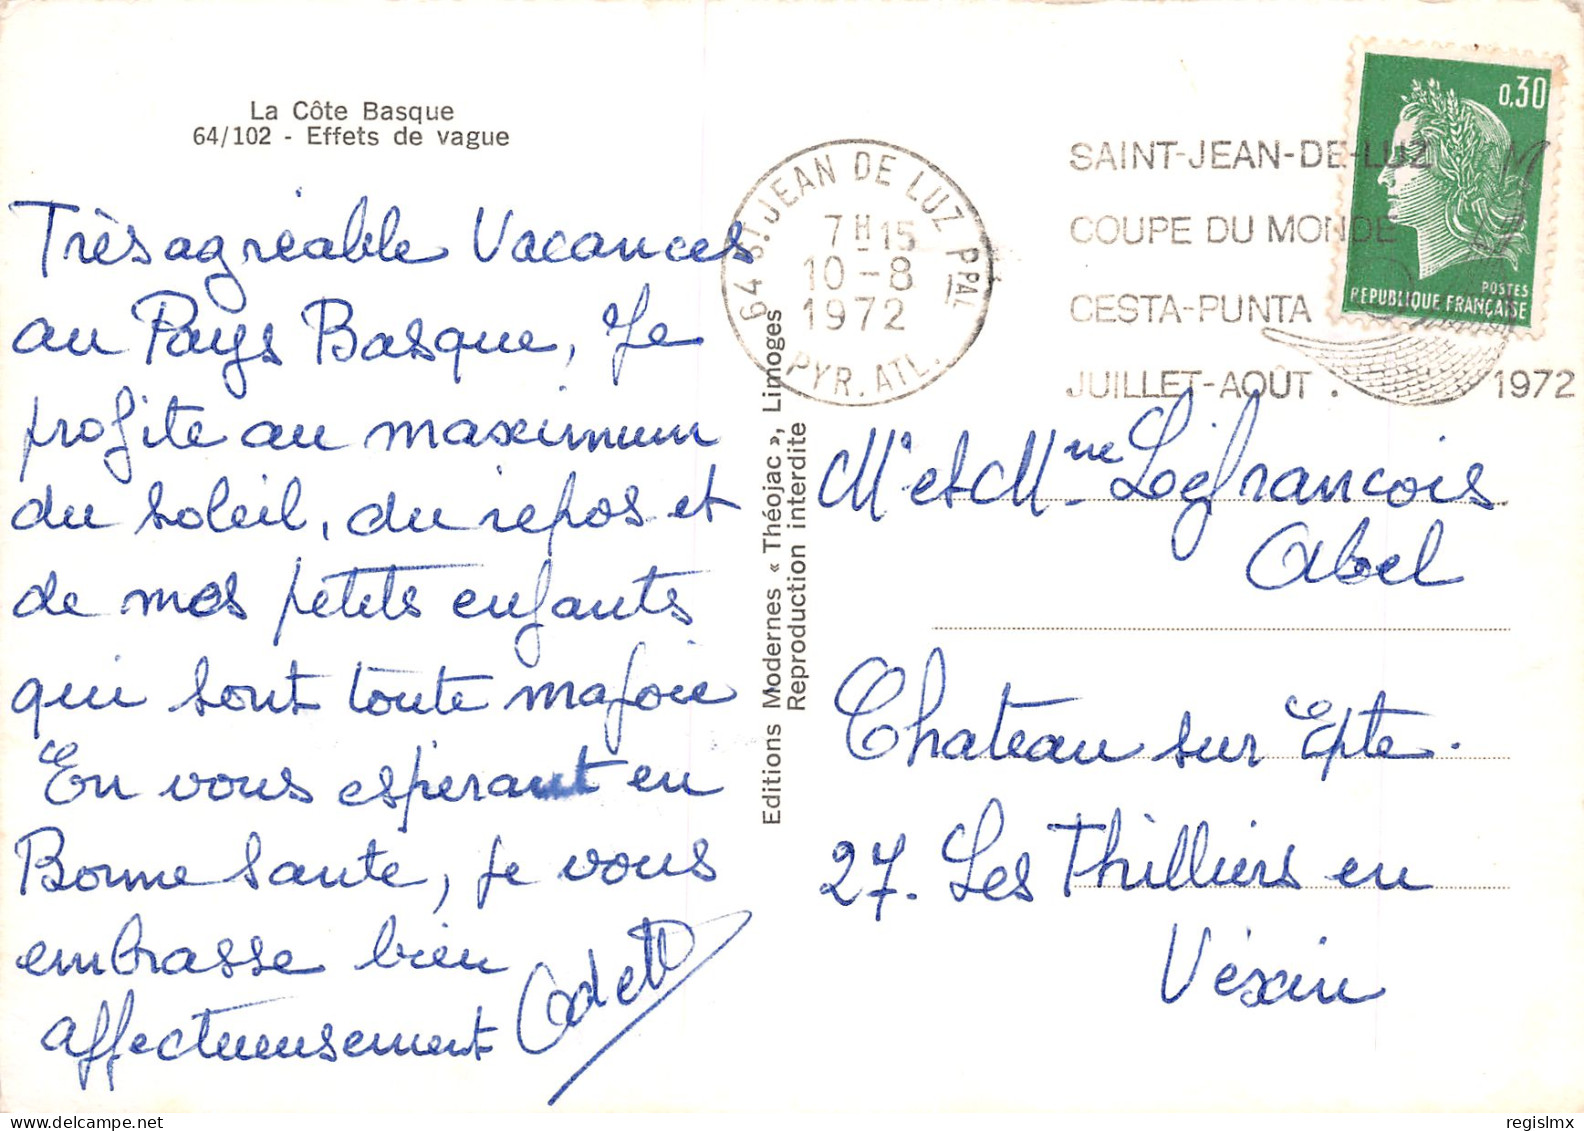 La Côte Basque
64/102 - Effets de vague
Très agréable Vacances
au Pays Basque, Je
profite au maximum
du soleil, du repos et
de mes petits enfants
qui sont toute ma joie
En vous esperant en
Bonne Sante, je vous
embrasse bien
affectueusement Odette
Editions Modernes « Théojac », Limoges
Reproduction interdite
64 ST JEAN DE LUZ PPAL
7H15
10-8
1972
PYR. ATL.
SAINT-JEAN-DE-LUZ
COUPE DU MONDE
CESTA-PUNTA
JUILLET-AOÛT . 1972
0,30
POSTES
REPUBLIQUE FRANÇAISE
Mr et Mme Lefrancois
Abel
Chateau sur Epte.
27. Les Thilliers en
Véxin
regislmx